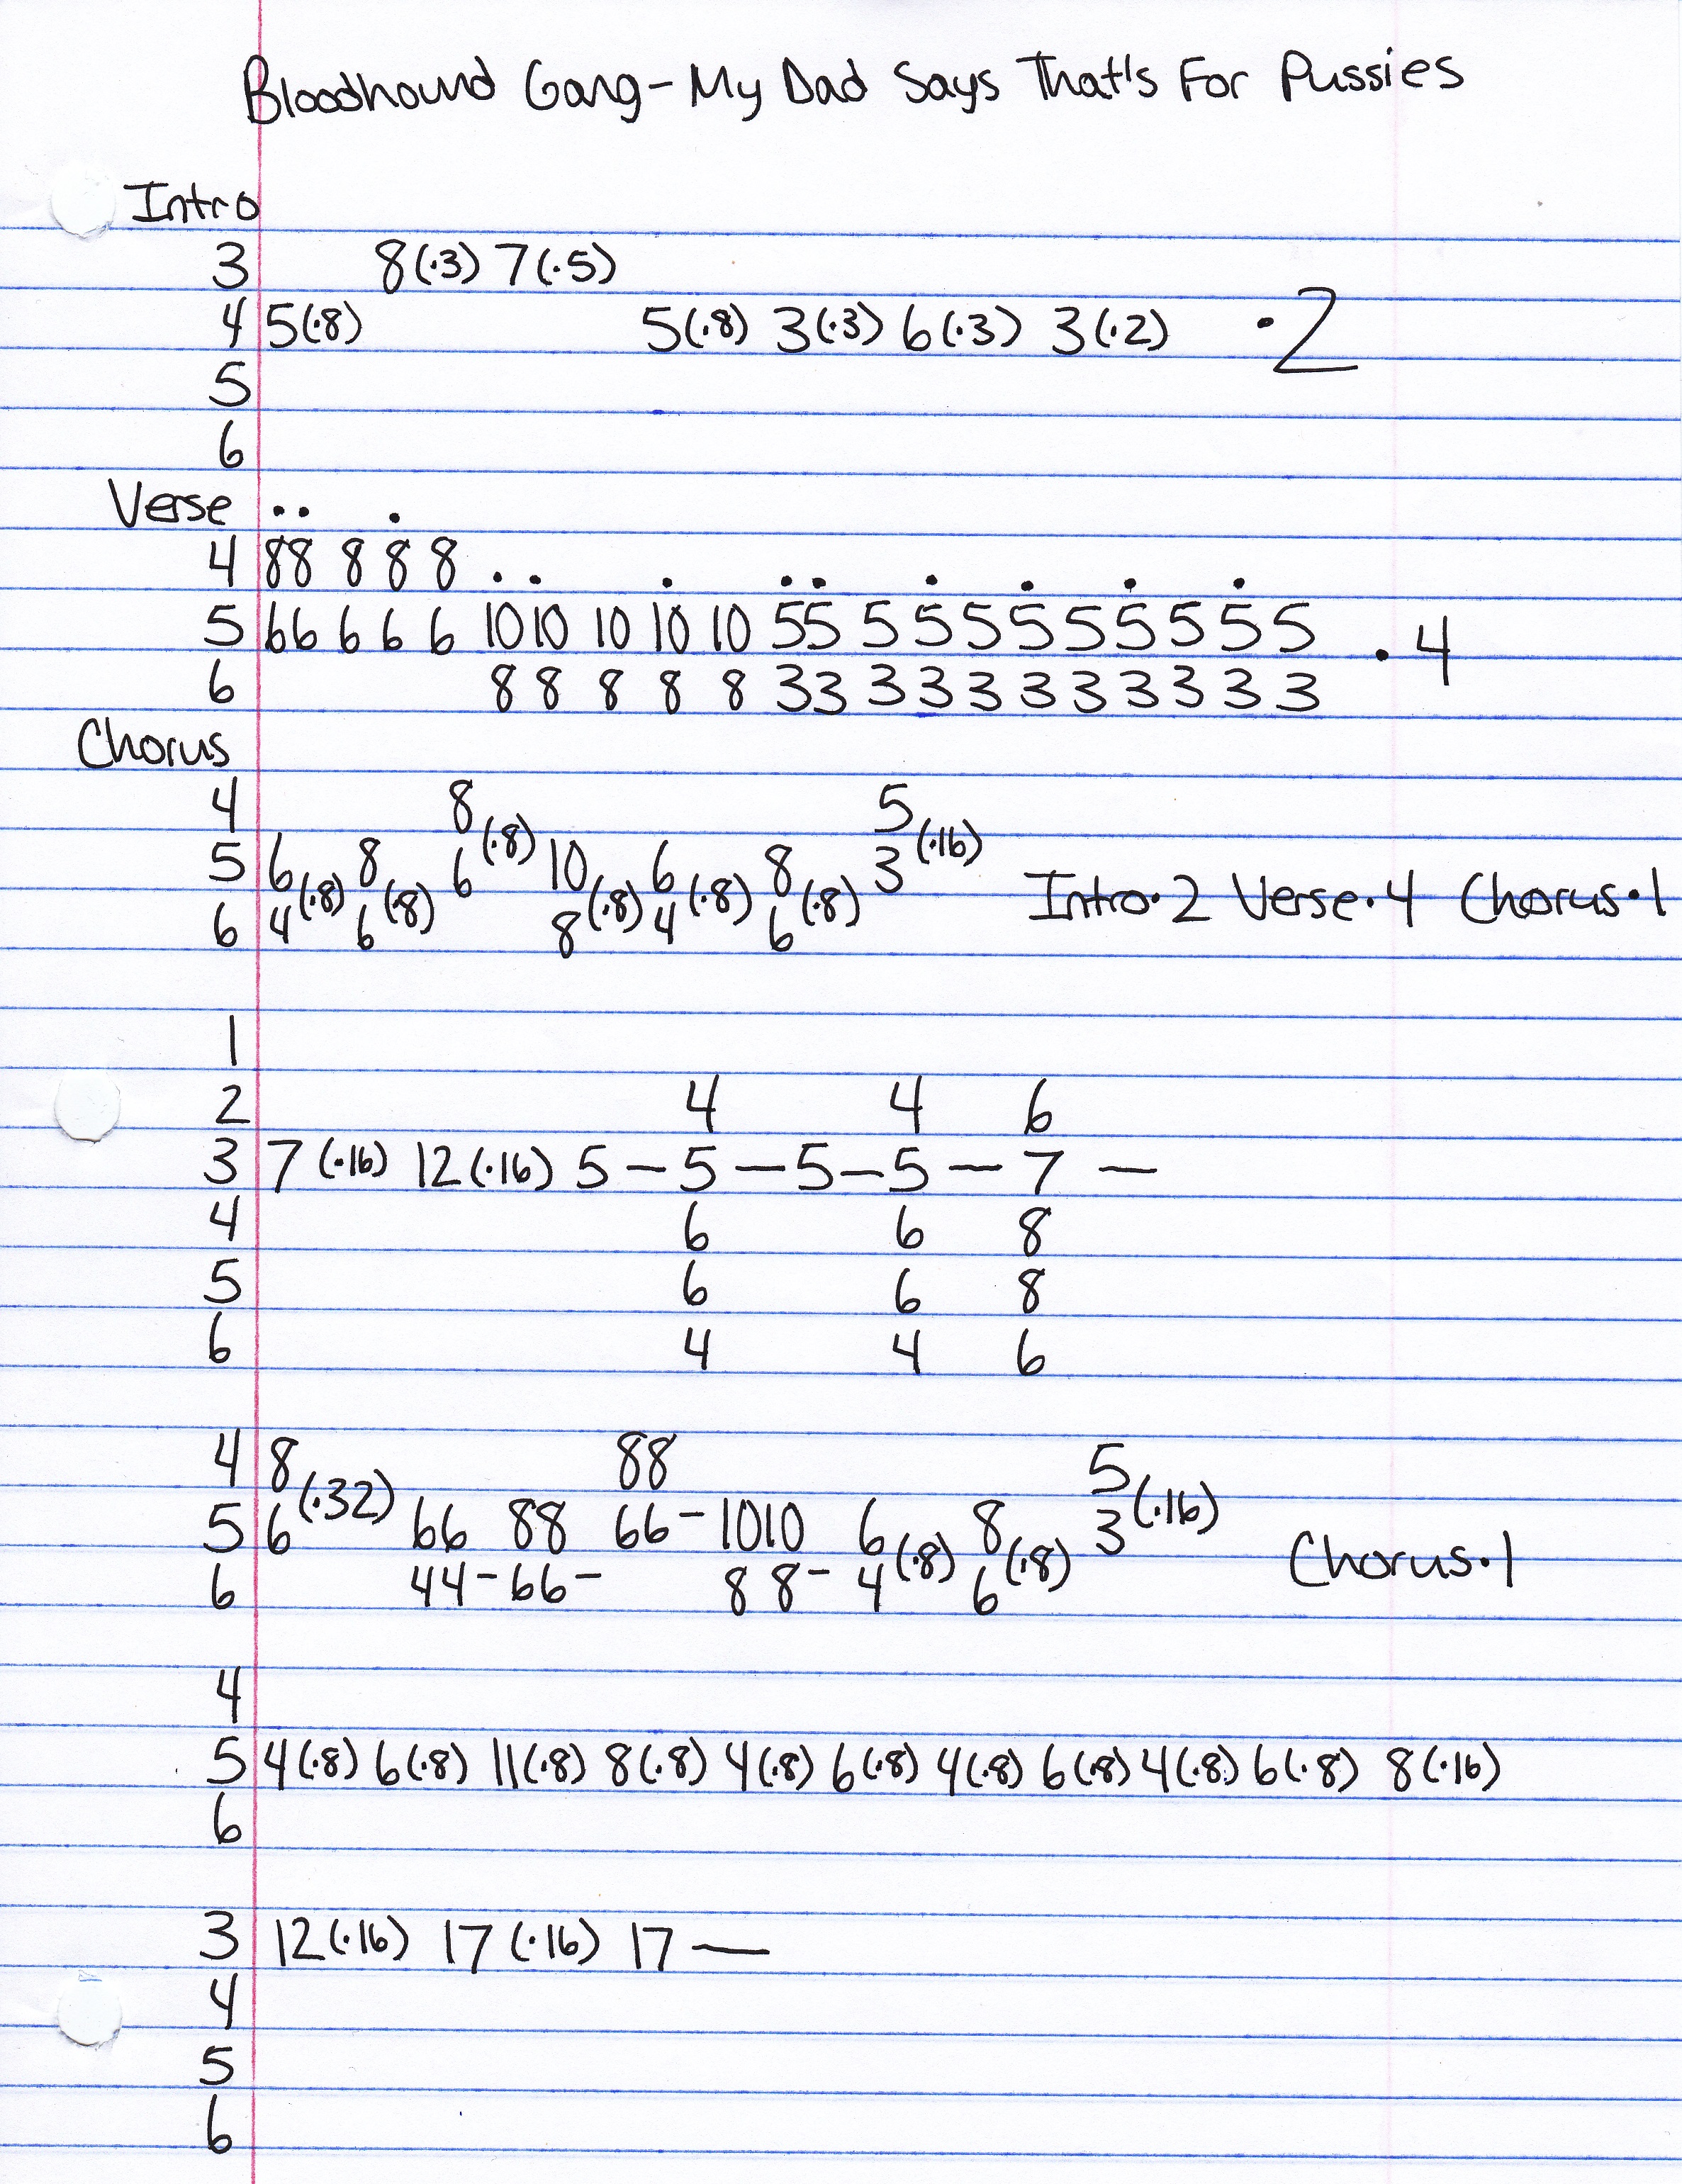 Bloodhound Gang - My Dad Says That's For Pussies
Intro
3 8(·3) 7(·5)
4 5(·8) 5(·8) 3(·3) 6(·3) 3(·2) ·2
5
6
Verse ·· ·
4 88 8 8 8 ·· · ·· · · · ·
5 66 6 6 6 1010 10 10 10 55 5 5 5 5 5 5 5 5 5 ·4
6 88 8 8 8 33 3 3 3 3 3 3 3 3 3
Chorus
4 8 5
(·8) (·16)
5 6 8 6 10 6 8 3
(·8) (·8) (·8) (·8) (·8) Intro·2 Verse·4 Chorus·1
6 4 6 8 4 6
1
2 4 4 6
3 7(·16) 12(·16) 5 — 5 — 5 — 5 — 7 —
4 6 6 8
5 6 6 8
6 4 4 6
4 8 88 5
(·32) (·16)
5 6 66 88 66 - 1010 6 8 3
(·8) (·8) Chorus·1
6 44 - 66 - 88 - 4 6
4
5 4(·8) 6(·8) 11(·8) 8(·8) 4(·8) 6(·8) 4(·8) 6(·8) 4(·8) 6(·8) 8(·16)
6
3 12(·16) 17(·16) 17 —
4
5
6